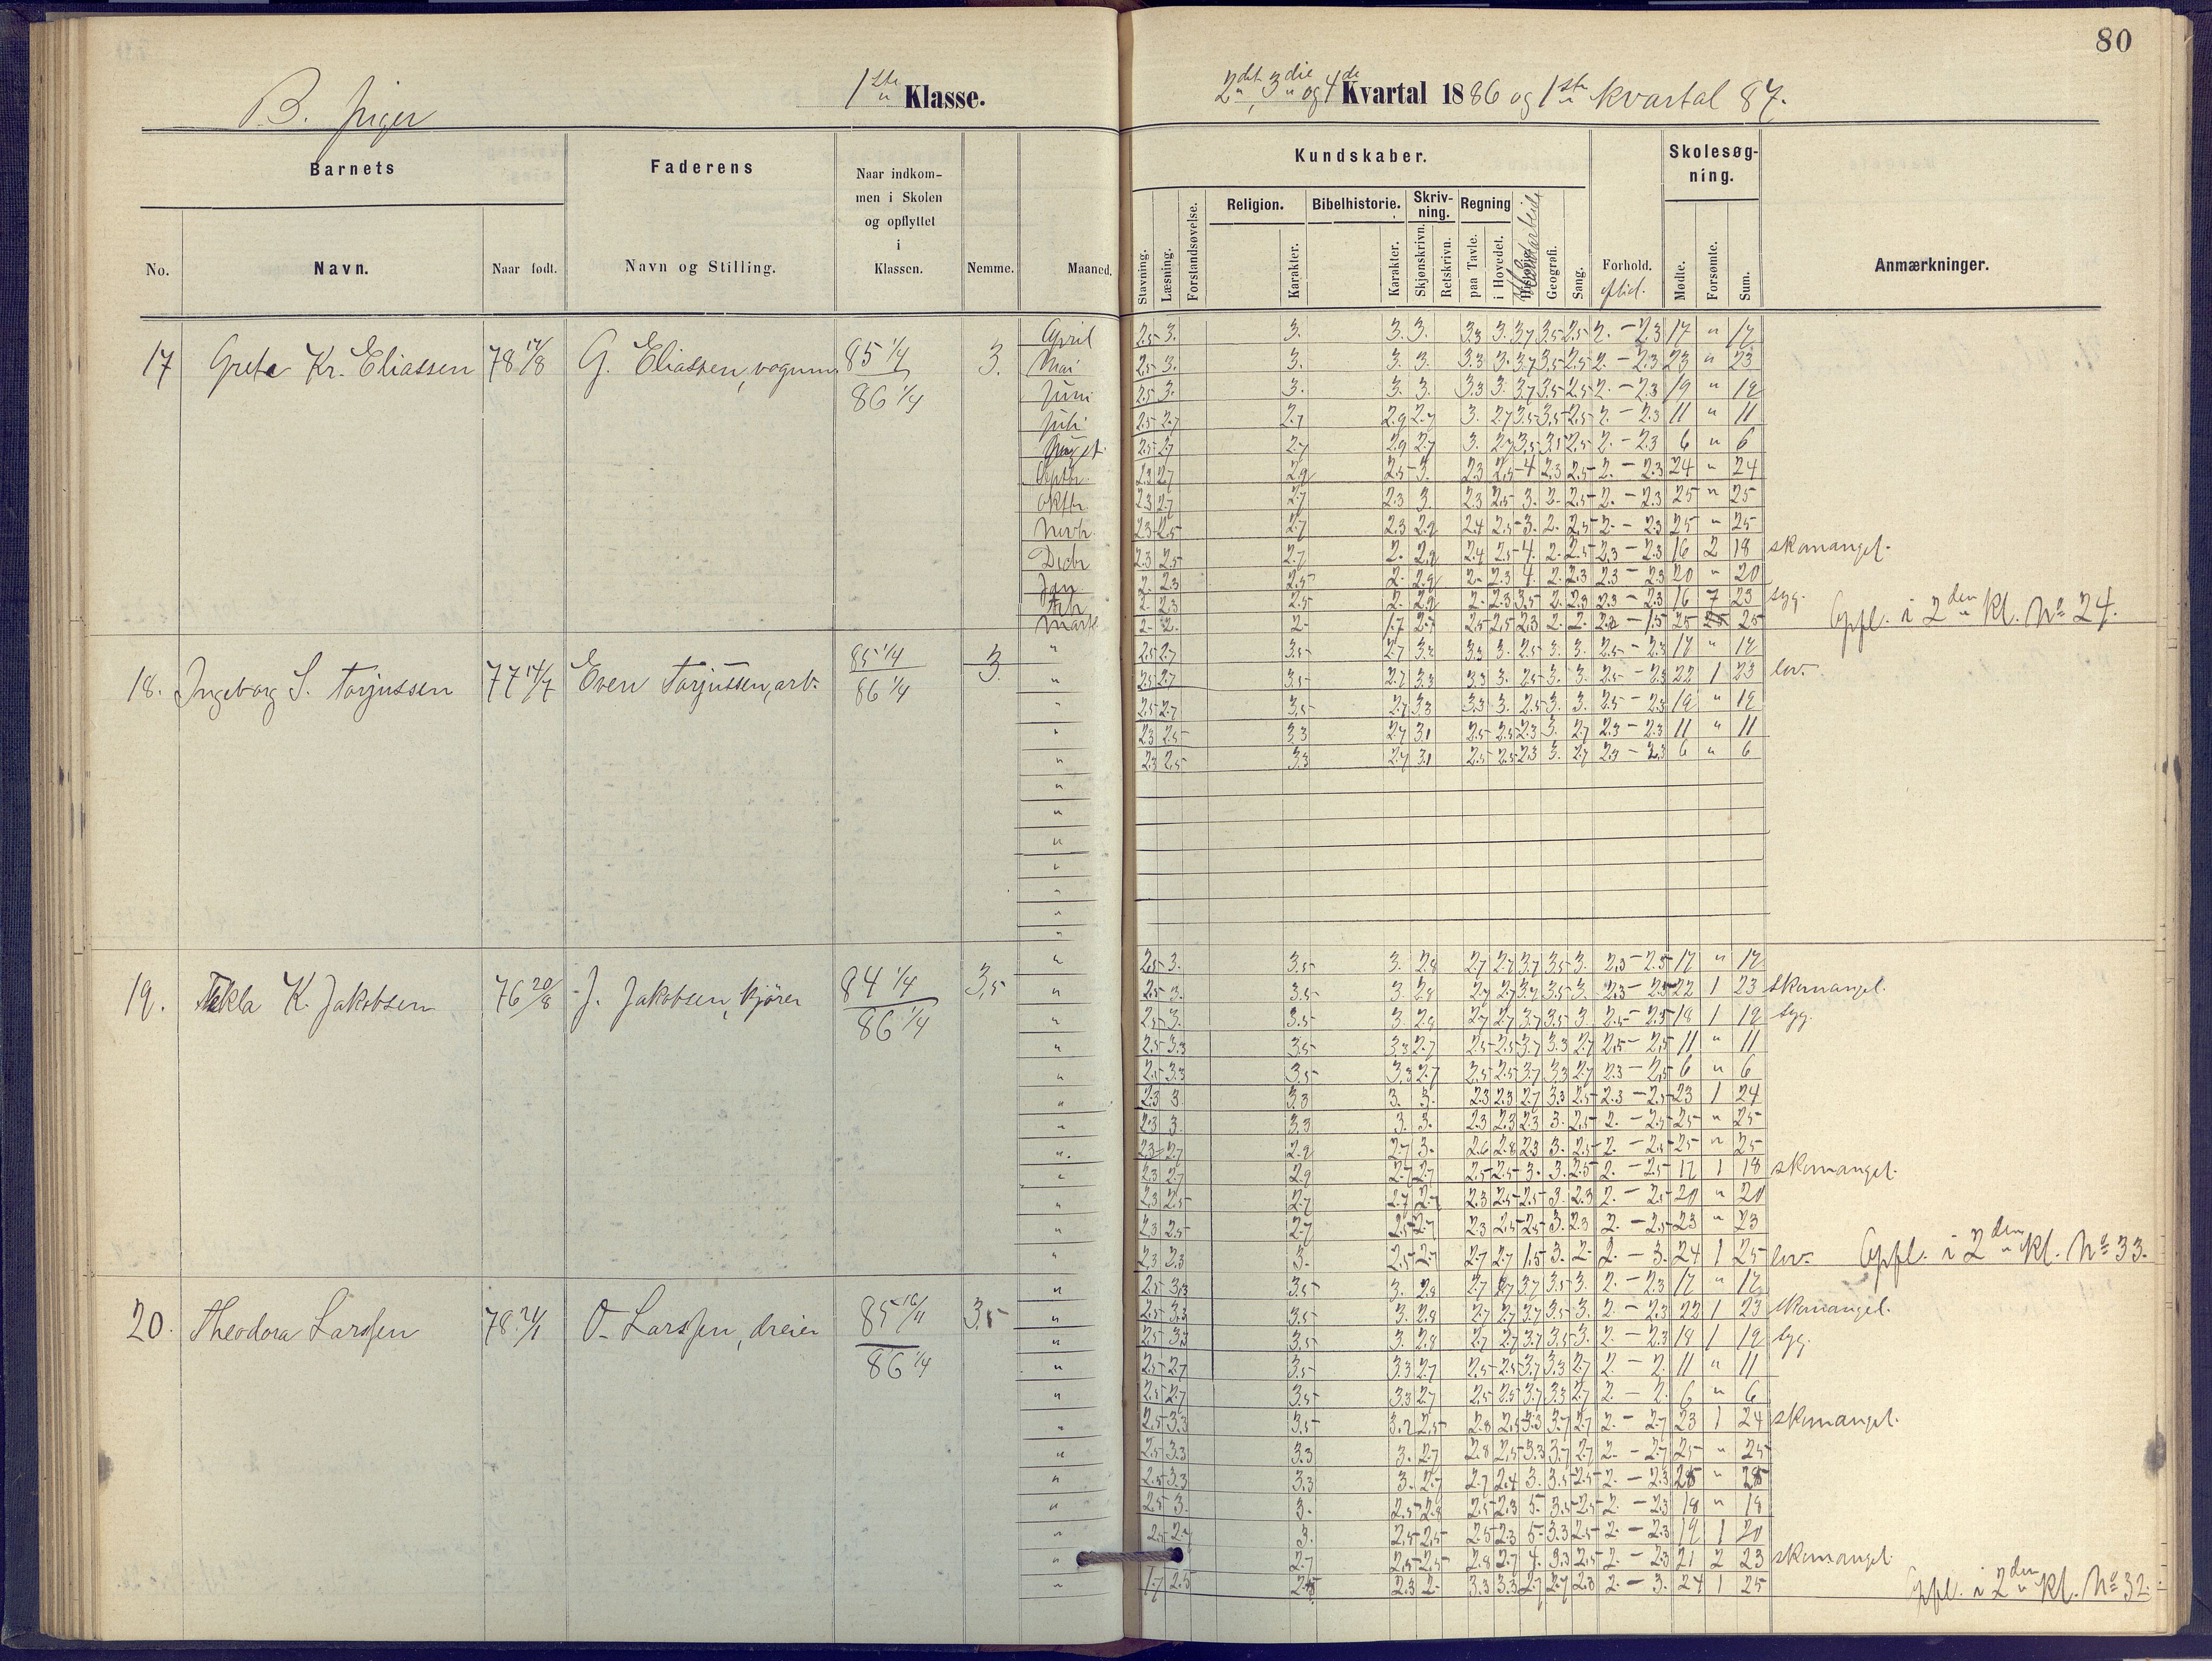 80
B. Piger
1ste Klasse.
2det, 3die og 4de Kvartal 1886 og 1ste kvartal 87.
Barnets
Faderens
Naar indkommen i Skolen og opflyttet i Klassen.
Nemme.
Maaned.
No.
Navn.
Naar født.
Navn og Stilling.
Kundskaber.
Skolesøgning.
Stavning.
Læsning.
Forstandsøvelse.
Religion.
Karakter.
Bibelhistorie.
Karakter.
Skrivning.
Skjønskrivn.
Retskrivn.
Regning
paa Tavle.
i Hovedet.
Historie.
Haandarbeide
Geografi.
Sang.
Forhold.
oflid.
Mødte.
Forsømte.
Sum.
Anmærkninger.
17 Grete Kr. Eliassen 78 17/8 G. Eliassen, vognm. 85 1/4 86 1/4 3.
April 2.5 3. 3. 3. 3. 3.3 3. 3.7 3.5 2.5 2. - 2.3 17 " 17
Mai 2.5 3. 3. 3. 3. 3.3 3. 3.7 3.5 2.5 2. - 2.3 23 " 23
Juni 2.5 3. 3. 3. 3. 3.3 3. 3.7 3.5 2.5 2. - 2.3 19 " 19
Juli 2.5 2.7 2.7 2.9 2.7 3. 2.7 3.5 3.5 2.5 2. - 2.3 11 " 11
August 2.5 2.7 2.7 2.9 2.7 3. 2.7 3.5 3.1 2.5 2. - 2.3 6 " 6
Septbr. 2.3 2.7 2.9 2.5 3. 2.3 2.5 4 2.3 2.5 2. - 2.3 24 " 24
Oktbr 2.3 2.7 2.7 2.3 3. 2.3 2.5 3. 2. 2.5 2. - 2.3 25 " 25
Novbr. 2.3 2.5 2.7 2.3 2.9 2.4 2.5 3. 2. 2.5 2. - 2.3 25 " 25
Decbr 2.3 2.5 2.7 2. 2.9 2.4 2.5 4. 2. 2.5 2.3 - 2.3 16 2 18 skomangel.
Jan 2. 2.3 2.5 2. 2.9 2. 2.3 4. 2. 2.3 2.3 - 2.3 20 " 20
Feb 2. 2.3 2.5 2. 2.9 2. 2.3 3.5 2. 2.3 2.3 - 2.3 16 7 23 syg.
Marts 2. 2. 2. 1.7 2.7 2.5 2.5 2.3 2. 2. - 1.5 25 25 Opfl. i 2den kl. No 24.
18. Ingeborg S. Torjussen 77 14/7 Even Torjussen, arb. 85 1/4 86 1/4 3.
" 2.5 2.7 3.5 2.7 3.3 3.3 3. 2.5 3. 3. 2.5 - 2.3 17 " 17
" 2.5 2.7 3.5 2.7 3.3 3.3 3. 2.5 3. 3. 2.5 - 2.3 22 1 23 lov.
" 2.5 2.7 3.5 2.7 3.3 3.3 3. 2.5 3. 3. 2.5 - 2.3 19 " 19
" 2.3 2.5 3.3 2.7 3.1 2.5 2.5 2.3 3. 2.7 2.3 - 2.3 11 " 11
" 2.3 2.5 3.3 2.7 3.1 2.5 2.5 2.3 3. 2.7 2.3 - 2.3 6 " 6
"
"
"
"
"
"
"
19. Tekla K. Jakobsen 76 20/8 J. Jakobsen, kjører 84 1/4 86 1/4 3,5
" 2.5 3. 3.5 3. 2.8 2.7 2.7 3.7 3.5 3. 2.5 - 2.5 17 " 17
" 2.5 3. 3.5 3. 2.8 2.7 2.7 3.7 3.5 3. 2.3 - 2.5 22 1 23 skomangel.
" 2.5 3. 3.5 3. 2.8 2.7 2.7 3.7 3.5 3. 2.5 - 2.5 18 1 19 syg.
" 2.5 3.3 3.5 3.3 2.7 2.5 2.5 3.7 3.3 2.7 2.5 - 2.5 11 " 11
" 2.5 3.3 3.5 3.3 2.7 2.5 2.5 3.7 3.3 2.7 2.3 - 2.5 6 " 6
" 2.3 3 3.3 3. 3. 2.3 2.3 2.7 3.3 2.5 2.3 - 2.5 23 1 24
" 2.3 3. 3.3 3. 3. 2.3 2.3 2.3 3. 2.5 2. - 2.5 25 " 25
" 2.3 2.7 2.9 2.7 3. 2.6 2.8 2.3 3. 2.5 2. - 2.5 25 " 25
" 2.3 2.7 2.9 2.7 2.7 2.5 2.5 3. 3. 2.5 2. - 2.5 17 1 18 skomangel.
" 2.3 2.5 2.7 2.7 2.7 2.3 2.5 2.5 3. 2.3 2. - 2.5 20 " 20
" 2.3 2.5 2.7 2.5 2.7 2.3 2.5 2.5 3. 2.3 2. - 2.5 23 " 23
" 2.3 2.3 3. 2.5 2.7 2.7 2.7 1.5 3. 2. 2. - 3. 24 1 25 lov. Opfl. i 2den kl. No 33.
20. Theodora Larssen 78 24/1 O. Larssen, dreier 85 16/11 86 1/4 3.5
" 2.5 3.3 3.5 3. 2.8 2.7 2.7 3.7 3.5 3. 2. - 2.3 17 " 17
" 2.5 3.3 3.5 3. 2.8 2.7 2.7 3.7 3.5 3. 2. - 2.3 22 1 23 skomangel.
" 2.5 3.3 3.5 3. 2.8 2.7 2.7 3.7 3.5 3. 2. - 2.3 18 1 19 syg.
" 2.5 2.7 3.5 3.3 2.7 2.5 2.5 3.7 3.3 2.7 2. - 2. 11 " 11
" 2.5 2.7 3.5 3.3 2.7 2.5 2.5 3.7 3.3 2.7 2. - 2. 6 " 6
" 2.5 3.3 3.5 3.2 2.5 2.8 2.5 3.3 3.7 2.7 2. - 2.7 23 1 24 skomangel.
" 2.5 3.3 3.3 3. 2.7 2.8 2.5 3.3 3.7 2.7 2. - 2.7 25 " 25
" 2.5 3.3 3.3 3. 2.7 2.7 2.4 3. 3.5 2.5 2. - 2.3 25 " 25
" 2.5 3. 3. 2.5 2.8 2.5 2.3 5. 3.5 2.5 2. - 2.3 18 " 18
" 2.5 3. 2.5 2.5 2.5 2.3 5. 3.3 2.5 2. - 2.3 19 1 20
" 2.7 2.5 2.5 2.8 2.7 4. 3.3 2.5 2. - 2.3 21 2 23 skomangel.
" 1.7 2.5 2.3 2. 3.3 3.3 2.7 2.7 2.3 2. - 3. 24 1 25 Opfl. i 2den kl. No 32.